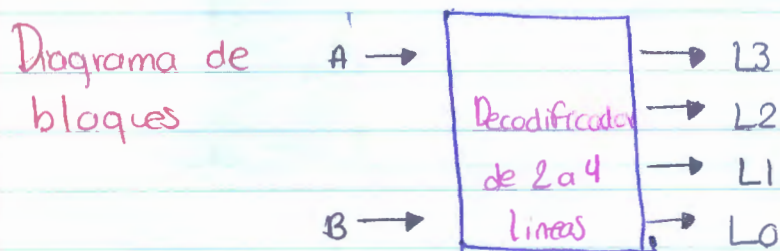 Diagrama de
bloques
A
B
Decodificador
de 2 a 4
lineas
L3
L2
L1
L0